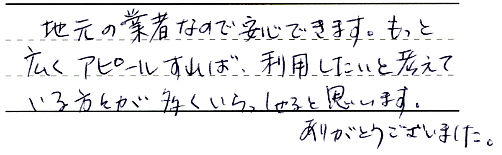 地元の業者なので安心できます。もっと
広くアピールすれば、利用したいと考えて
いる方々が多くいらっしゃると思います。
ありがとうございました。